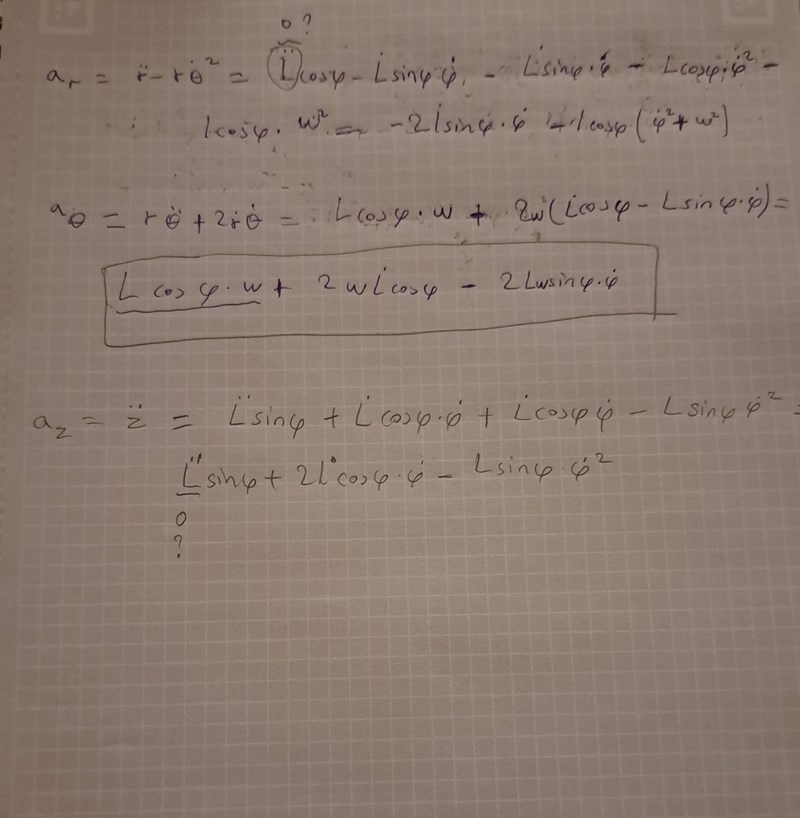 0 ?
a_r = r̈ - rθ̇² = L̈cosφ - L̇sinφ φ̇ - L̇sinφ·φ̇ - Lcosφ·φ̇² -
lcosφ · w² = -2l̇sinφ·φ̇ - lcosφ(φ̇² + w²)
a_θ = rθ̈ + 2ṙθ̇ = Lcosφ·w + 2w(L̇cosφ - Lsinφ·φ̇) =
L cosφ·w + 2wL̇cosφ - 2Lwsinφ·φ̇
a_z = z̈ = L̈sinφ + L̇cosφ·φ̇ + L̇cosφφ̇ - Lsinφ φ̇² =
L̈sinφ + 2L̇cosφ·φ̇ - Lsinφ·φ̇²
0
?